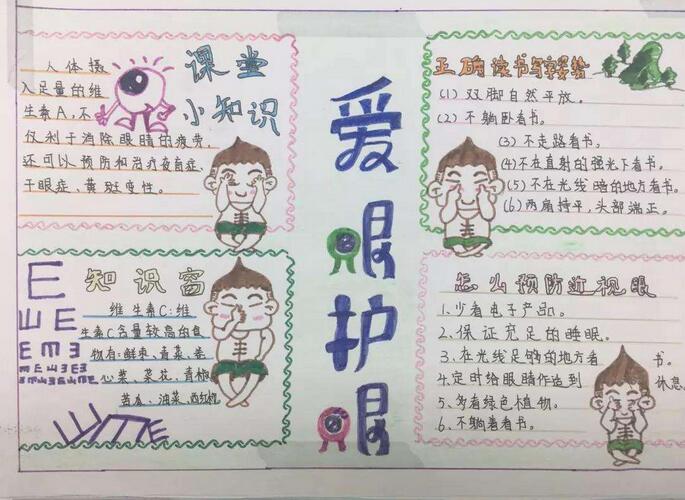 课堂
小知识
人体摄
入足量的维
生素A,不
仅利于消除眼睛的疲劳,
还可以预防和治疗夜盲症、
干眼症、黄斑变性。
爱
眼
护
眼
正确读书写字姿势
(1)双脚自然平放。
(2)不躺卧看书。
(3)不走路看书。
(4)不在直射的强光下看书。
(5)不在光线暗的地方看书。
(6)两肩持平,头部端正。
知识窗
维生素C:维
生素C含量较高的食
物有:鲜枣、青菜、卷
心菜、菜花、青椒
苦瓜、油菜、西红柿
E
ШE
EmЭ
怎么预防近视眼
1.少看电子产品。
2.保证充足的睡眠。
3.在光线足够的地方看书。
4.定时给眼睛作适到休息
5.多看绿色植物。
6.不躺着看书。